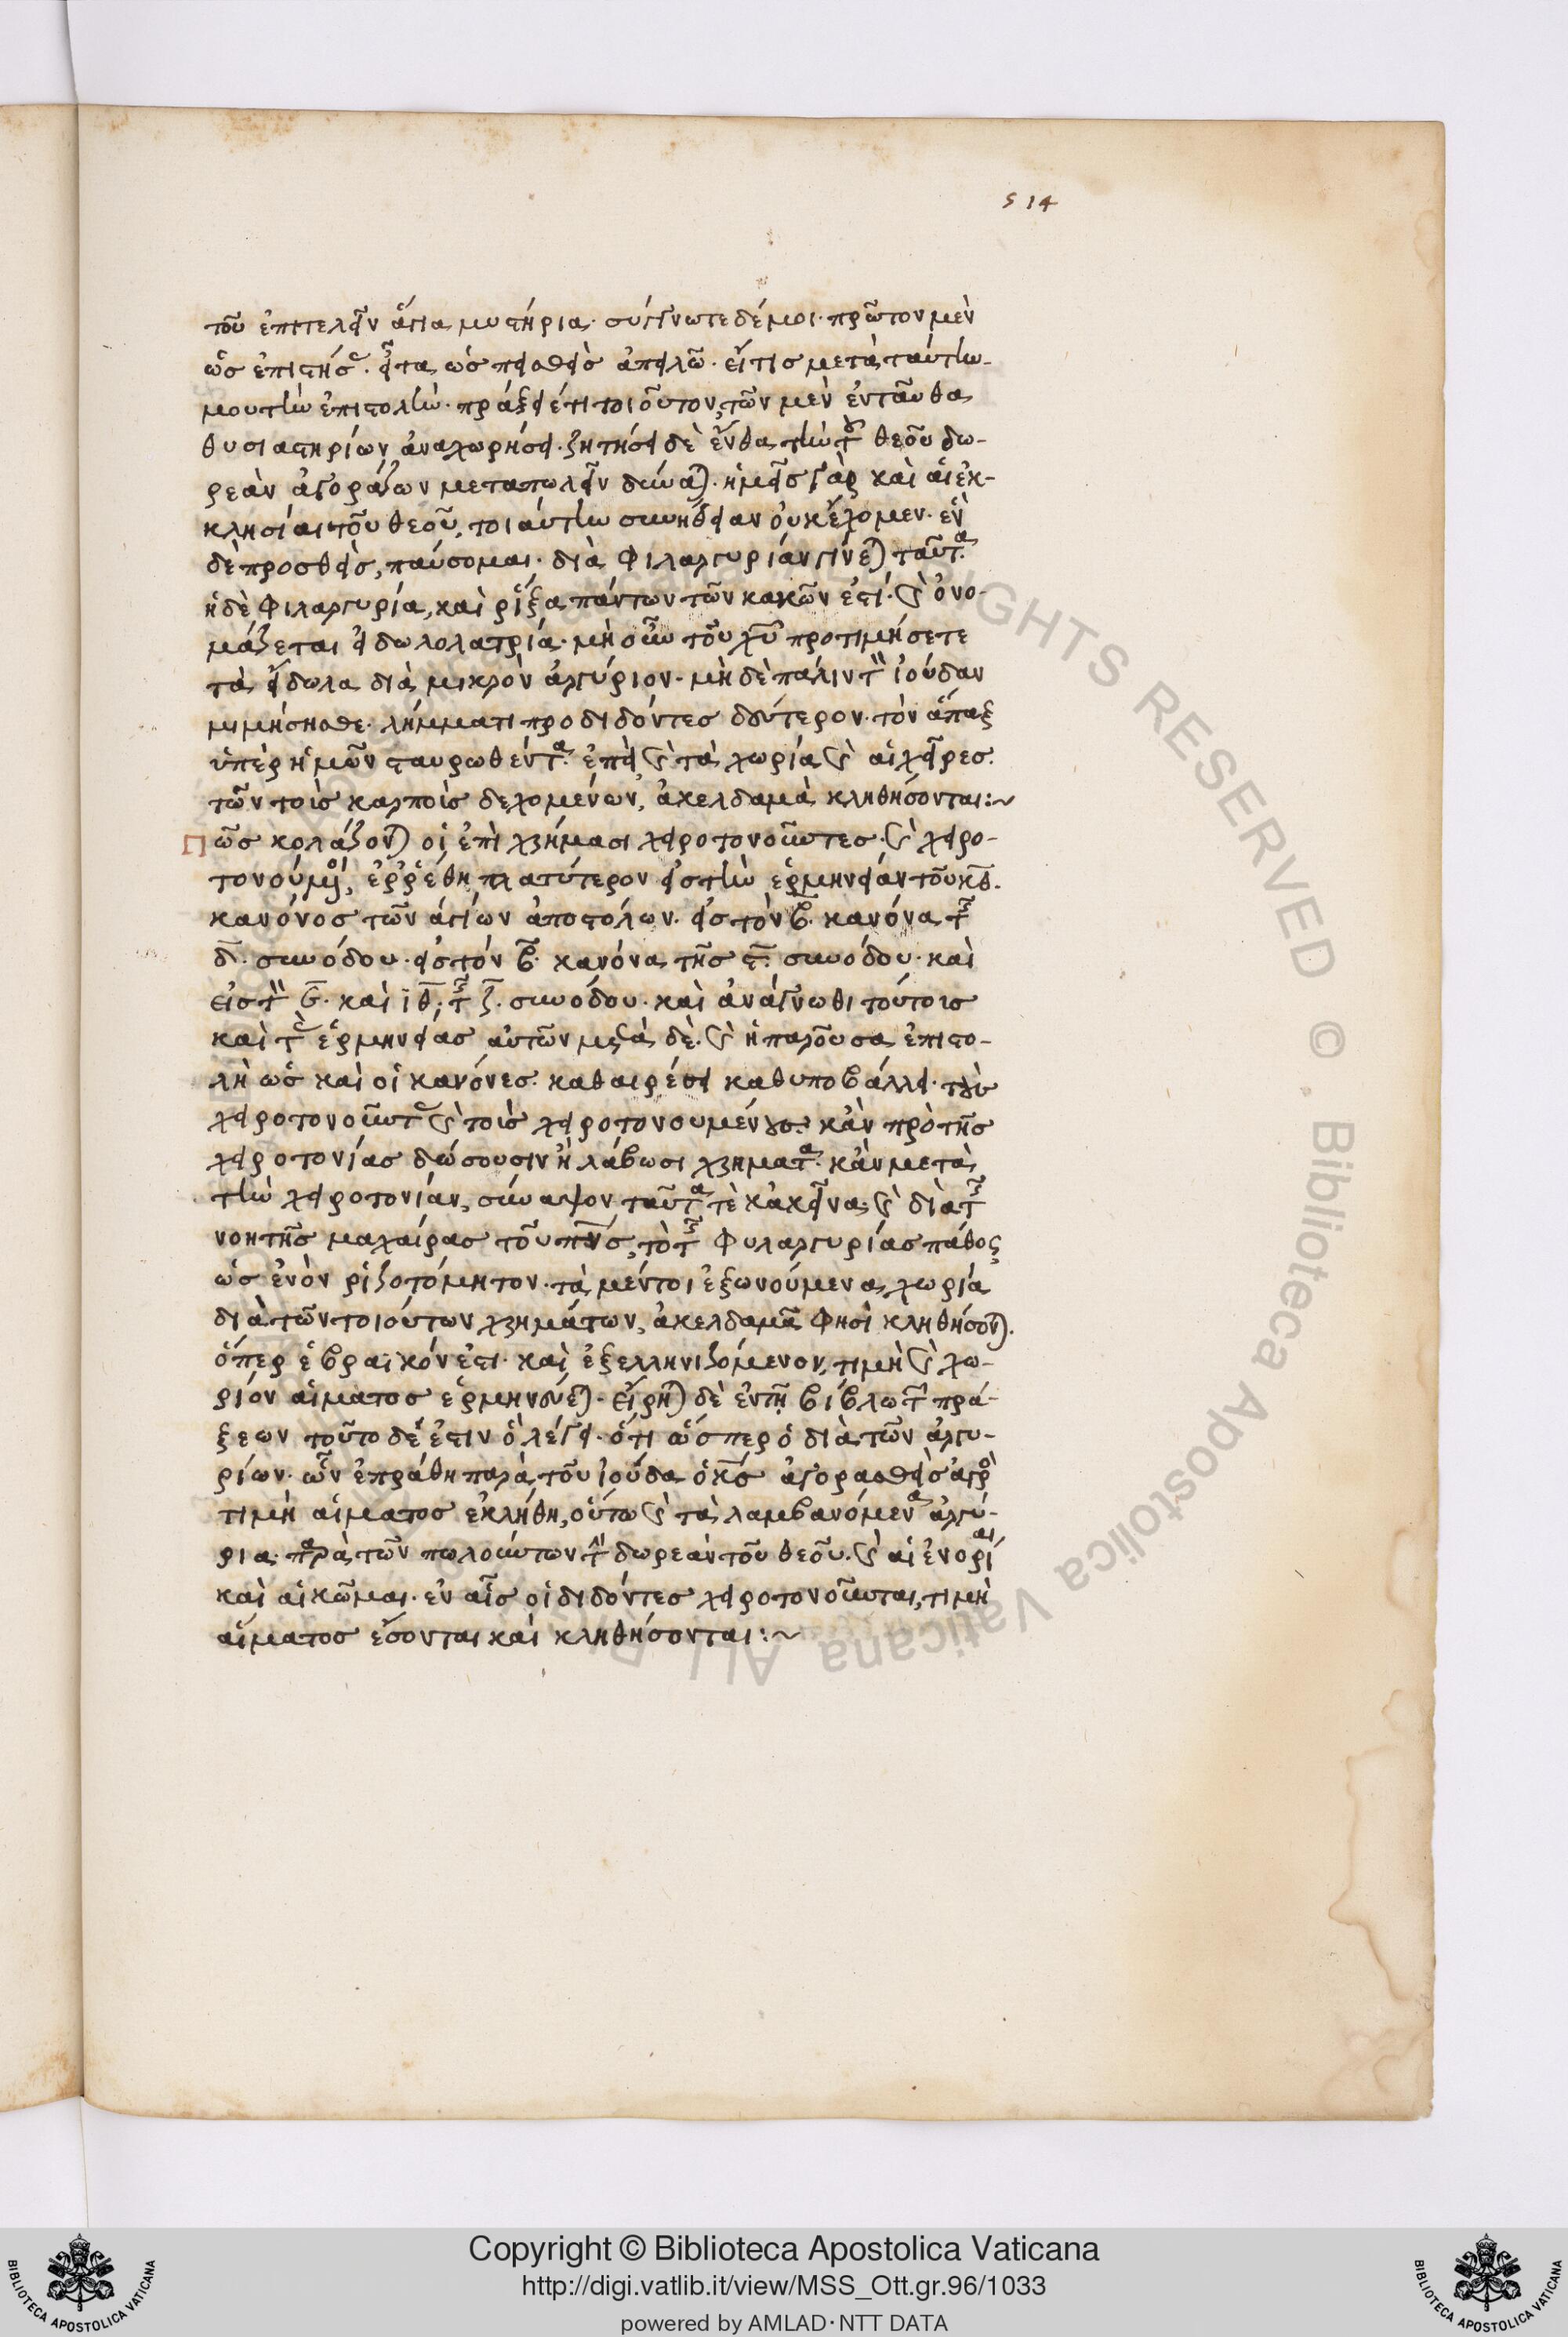 514
τοῦ ἐπιτελεῖν ἅγια μυστήρια· σύγγνωτε δέ μοι· πρῶτον μὲν
ὡς ἐπιστήσας· εἶτα ὡς πεισθεὶς ἀπειλῶ· εἴ τις μετὰ ταύτην
μου τὴν ἐπιστολὴν· πράξει ἐτι τοιοῦτον, τῶν μὲν ἐνταῦθα
θυσιαστηρίων ἀναχωρήσει· ζητήσει δὲ ἔνθα τὴν τοῦ θεοῦ δω-
ρεὰν ἀγοράζων μεταπωλεῖν δύναται· ἡμεῖς γὰρ καὶ αἱ ἐκ-
κλησίαι τοῦ θεοῦ, τοιαύτην συνήθειαν οὐκ ἔχομεν· ἓν
δὲ προσθεὶς, παύσομαι· διὰ φιλαργυρίαν γίνεται ταῦτα·
ἡ δὲ φιλαργυρία, καὶ ῥίζα πάντων τῶν κακῶν ἐστί· καὶ ὀνο-
μάζεται εἰδωλολατρία· μὴ οὖν τοῦ χυ προτιμήσετε
τὰ εἴδωλα διὰ μικρὸν ἀργύριον· μὴ δὲ πάλιν τὸν ἰούδαν
μιμήσησθε· λήμματι προδιδόντες δεύτερον· τὸν ἅπαξ
ὑπὲρ ἡμῶν σταυρωθέντα· ἐπεὶ καὶ τὰ χωρία καὶ αἱ χεῖρες
τῶν τοὺς καρποὺς δεχομένων, ἀκελδαμὰ κληθήσονται:~
ὡς κολάζονται οἱ ἐπὶ χρήμασι χειροτονοῦντες· καὶ χειρο-
τονούμενοι, ἐρρέθη πλατύτερον εἰς τὴν ἑρμηνείαν τοῦ κθ.
κανόνος τῶν ἁγίων ἀποστόλων· εἰς τὸν β· κανόνα τῆς
δ· συνόδου· εἰς τὸν β· κανόνα τῆς ϛ· συνόδου· καὶ
εἰς τὸν ϛ· καὶ ιθ· τῆς ζ· συνόδου· καὶ ἀνάγνωθι τούτοις
καὶ τὰς ἑρμηνείας αὐτῶν μετὰ δὲ· καὶ ἡ παροῦσα ἐπιστο-
λὴ ὡς καὶ οἱ κανόνες· καθαιρέσει καθυποβάλλει· τοὺς
χειροτονοῦντας καὶ τοὺς χειροτονουμένους· κἂν πρὸ τῆς
χειροτονίας δώσουσιν ἢ λάβωσι χρήματα· κἂν μετὰ
τὴν χειροτονίαν, σύναψον ταῦτά τε κἀκεῖνα· καὶ διὰ τῆς
νοητῆς μαχαίρας τοῦ πνς, τὸ τῆς φυλαργυρίας πάθος
ὡς ἐνὸν ῥιζοτόμητον· τὰ μέντοι ἐξωνούμενα χωρία
διὰ τῶν τοιούτων χρημάτων, ἀκελδαμᾶ φησὶ κληθήσονται.
ὅπερ ἑβραϊκόν ἐστι· καὶ ἐξελληνιζόμενον, τιμὴ καὶ χω-
ρίον αἵματος ἑρμηνεύεται· εἴρηται δὲ ἐν τῇ βίβλω τῶν πρά-
ξεων τοῦτο δέ ἐστιν ὃ λέγει· ὅτι ὥσπερ ὁ διὰ τῶν ἀργυ-
ρίων· ὧν ἐπράθη παρὰ τοῦ ἰούδα ὁ κς ἀγορασθεὶς ἀγρὸς
τιμὴ αἵματος ἐκλήθη, οὕτω καὶ τὰ λαμβανόμενα ἀργύ-
ρια· παρὰ τῶν πωλούντων τὴν δωρεὰν τοῦ θεοῦ· καὶ αἱ ἐνορίαι
καὶ αἱ κῶμαι· ἐν αἷς οἱ διδόντες χειροτονοῦνται, τιμὴ
αἵματος ἔσονται καὶ κληθήσονται:~
ALL RIGHTS RESERVED © . Biblioteca Apostolica Vaticana
Copyright © Biblioteca Apostolica Vaticana
http://digi.vatlib.it/view/MSS_Ott.gr.96/1033
powered by AMLAD·NTT DATA
BIBLIOTECA APOSTOLICA VATICANA
BIBLIOTECA APOSTOLICA VATICANA